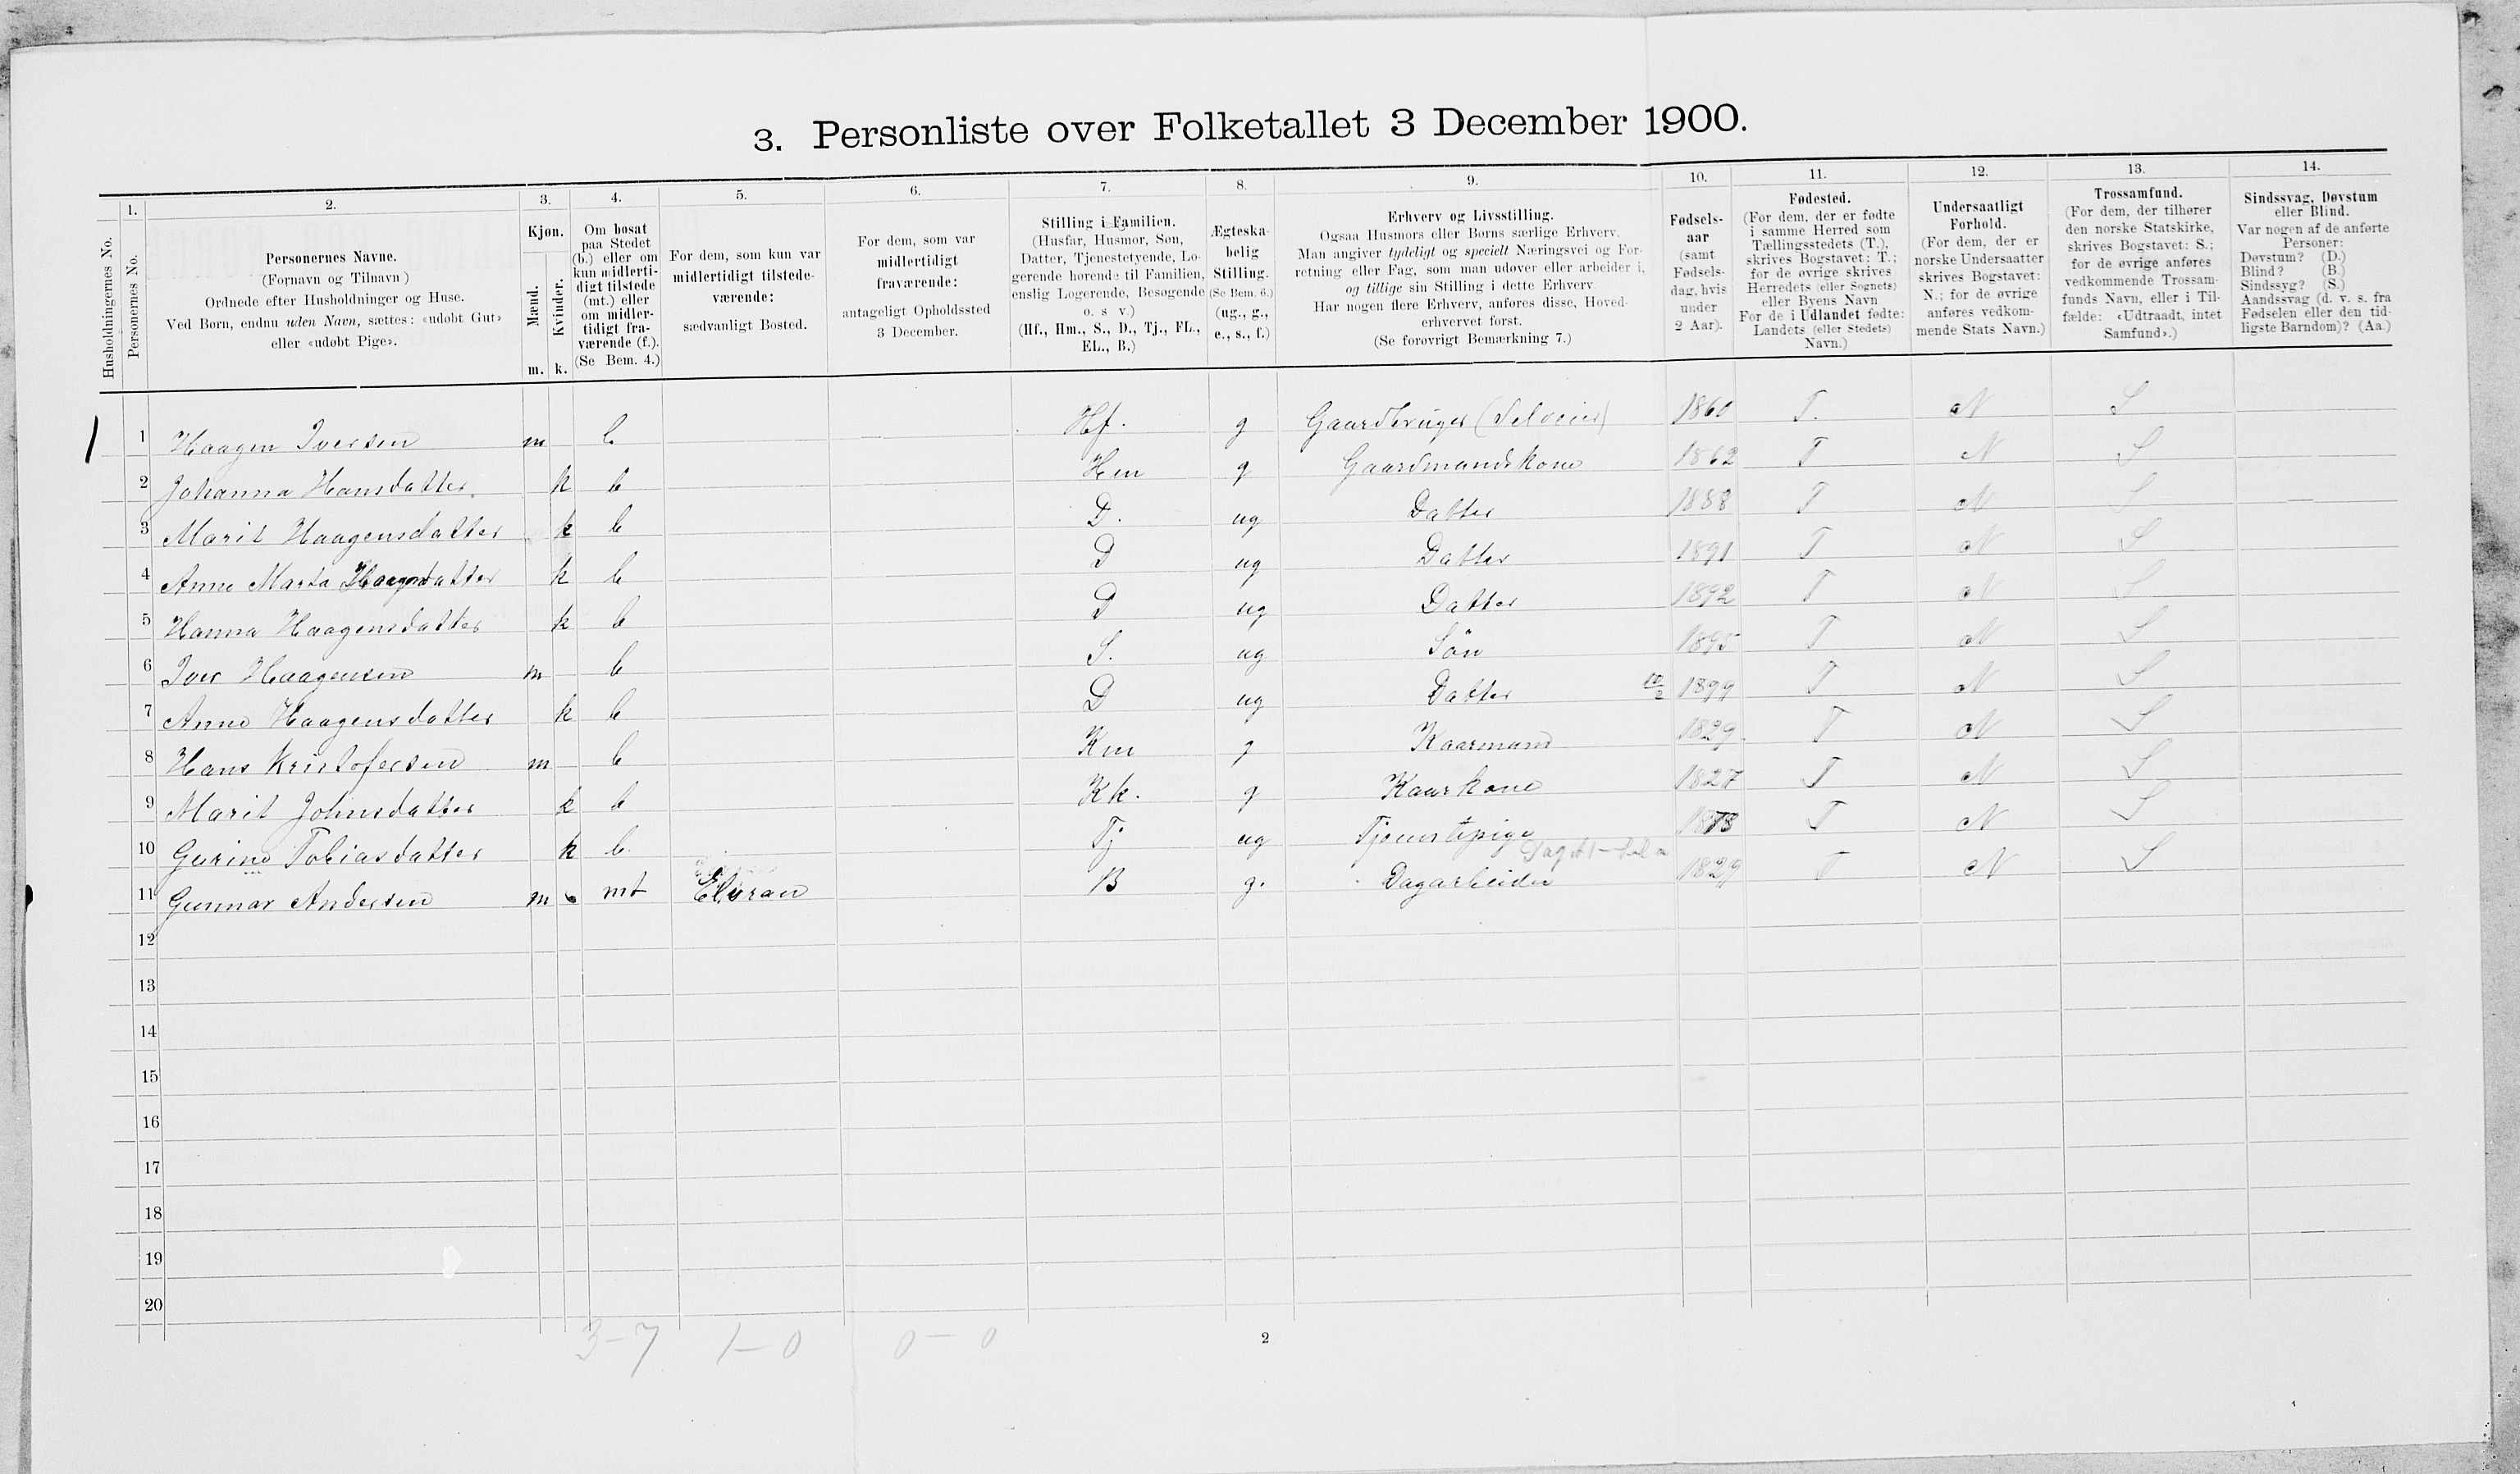 3. Personliste over Folketallet 3 December 1900.
Husholdningernes No.
1. Personernes No.
2.
Personernes Navne.
(Fornavn og Tilnavn)
Ordnede efter Husholdninger og Huse.
Ved Børn, endnu uden Navn, sættes: «udøbt Gut»
eller «udøbt Pige».
3.
Kjøn.
Mænd. m.
Kvinder. k.
4.
Om bosat
paa Stedet
(b.) eller om
kun midlerti-
digt tilstede
(mt.) eller
om midler-
tidigt fra-
værende (f.).
(Se Bem. 4.)
5.
For dem, som kun var
midlertidigt tilstede-
værende:
sædvanligt Bosted.
6.
For dem, som var
midlertidigt
fraværende:
antageligt Opholdssted
3 December.
7.
Stilling i Familien.
(Husfar, Husmor, Søn,
Datter, Tjenestetyende, Lo-
gerende hørende til Familien,
enslig Logerende, Besøgende
o. s v.)
(Hf., Hm., S., D., Tj., FL.,
EL., B.)
8.
Ægteska-
belig
Stilling.
(Se Bem. 6.)
(ug., g.,
e., s., f.)
9.
Erhverv og Livsstilling.
Ogsaa Husmors eller Børns særlige Erhverv.
Man angiver tydeligt og specielt Næringsvei og For-
retning eller Fag, som man udøver eller arbeider i,
og tillige sin Stilling i dette Erhverv
Har nogen flere Erhverv, anføres disse, Hoved-
erhvervet først.
(Se forøvrigt Bemærkning 7.)
10.
Fødsels-
aar
(samt
Fødsels-
dag, hvis
under
2 Aar).
11.
Fødested.
(For dem, der er fødte
i samme Herred som
Tællingsstedets (T.),
skrives Bogstavet: T.;
for de øvrige skrives
Herredets (eller Sognets)
eller Byens Navn
For de i Udlandet fødte:
Landets (eller Stedets)
Navn.)
12.
Undersaatligt
Forhold.
(For dem, der er
norske Undersaatter
skrives Bogstavet:
N.; for de øvrige
anføres vedkom-
mende Stats Navn.)
13.
Trossamfund.
(For dem, der tilhører
den norske Statskirke,
skrives Bogstavet: S.;
for de øvrige anføres
vedkommende Trossam-
funds Navn, eller i Til-
fælde: «Udtraadt, intet
Samfund».)
14.
Sindssvag, Døvstum
eller Blind.
Var nogen af de anførte
Personer:
Døvstum? (D.)
Blind? (B.)
Sindssyg? (S.)
Aandssvag (d. v. s. fra
Fødselen eller den tid-
ligste Barndom)? (Aa.)
1 1 Haagen Iversen m b. Hf. g Gaardbruger (Selveier) 1860 T. N S
2 Johanna Hansdatter. k b Hm g Gaardmandskone 1862 T N S
3 Marit Haagensdatter k b D. ug Datter 1888 T N S
4 Anne Marta Haagensdatter k b D ug Datter 1891 T N S
5 Hanna Haagensdatter k b D ug Datter 1892 T N S
6 Iver Haagensen m b S. ug Sön 1895 T N S
7 Anne Haagensdatter k b D ug Datter 10/2 1899 T N S
8 Hans Kristofersen m b Km g Kaarmand 1829 T N S
9 Marit Johnsdatter k b Kk. g Kaarkone 1827 T N S
10 Gurine Tobiasdatter k b Tj ug Tjenestepige 1878 T N S
11 Gunnar Andersen m mt B g. Dagarbeider 1829 T N S
12
13
14
15
16
17
18
19
20
3–7 1–0 0–0
2